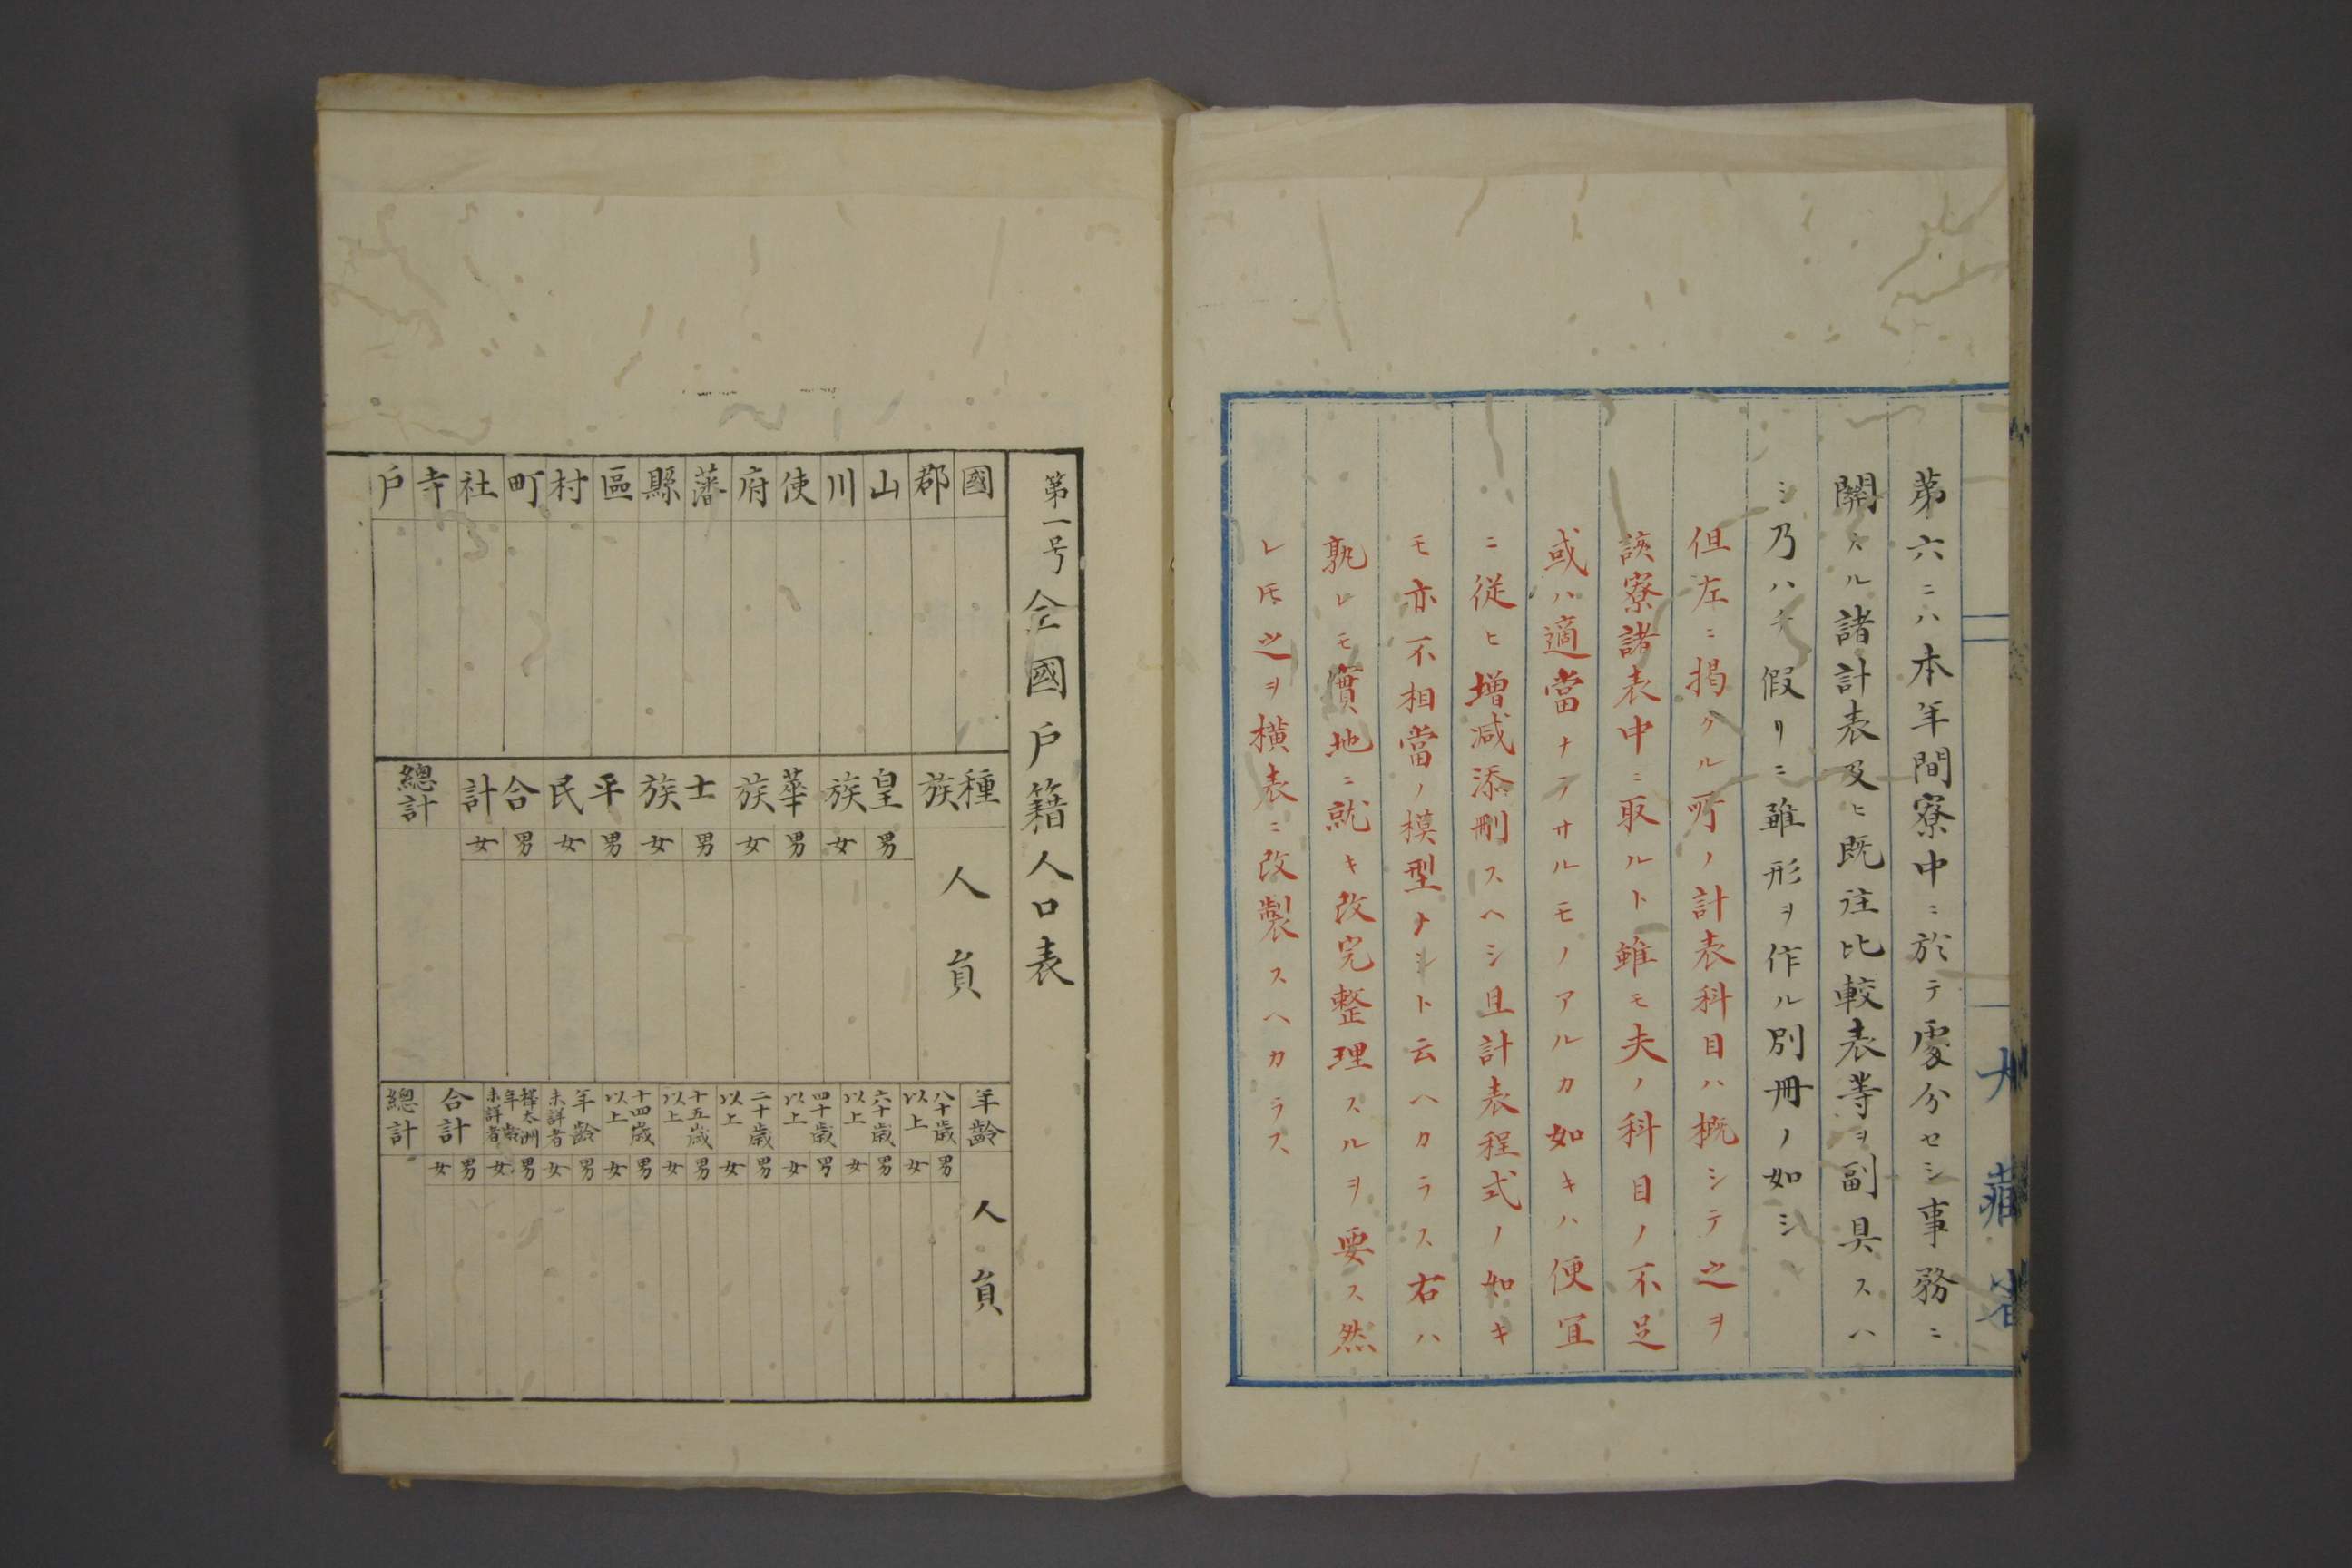 第六ニハ本年間寮中ニ於テ處分セシ事務ニ
關スル諸計表及ヒ既往比較表等ヲ副具スヘ
シ乃ハチ假リニ雖形ヲ作ル別冊ノ如シ
但左ニ掲クル所ノ計表科目ハ概シテ之ヲ
該寮諸表中ニ取ルト雖モ夫ノ科目ノ不足
或ハ適當ナラサルモノアルカ如キハ便宜
ニ從ヒ增減添刪スヘシ且計表程式ノ如キ
モ亦不相當ノ模型ナシト云ヘカラス右ハ
孰レモ實地ニ就キ改完整理スルヲ要ス然
レ𪜈之ヲ橫表ニ改製スヘカラス
第一号 全國戶籍人口表
國 郡 山 川 使 府 藩 縣 區 村 町 社 寺 戶
種族 皇族 華族 士族 平民 合計 總計
人員 男 女 男 女 男 女 男 女 男 女
年齡 八十歲以上 六十歲以上 四十歲以上 二十歲以上 十五歲以上 十四歲以上 年齡未詳者 樺太洲年齡未詳者 合計 總計
人員 男 女 男 女 男 女 男 女 男 女 男 女 男 女 男 女 男 女